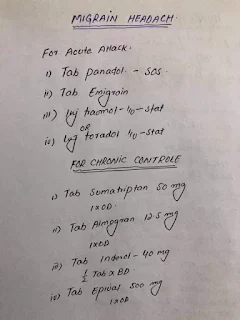 MIGRAIN HEADACH.
For Acute Attack.
i) Tab panadol. - SOS
ii) Tab Emigrain
iii) Inj tramol - IV - stat
OR
iv) Inj toradol IV - stat
FOR CHRONIC CONTROLE
i) Tab Sumatriptan 50 mg
1 x OD
ii) Tab Almogran 12.5 mg
1 x OD
iii) Tab Inderol - 40 mg
½ Tab x BD.
iv) Tab Epival 500 mg
1 x OD